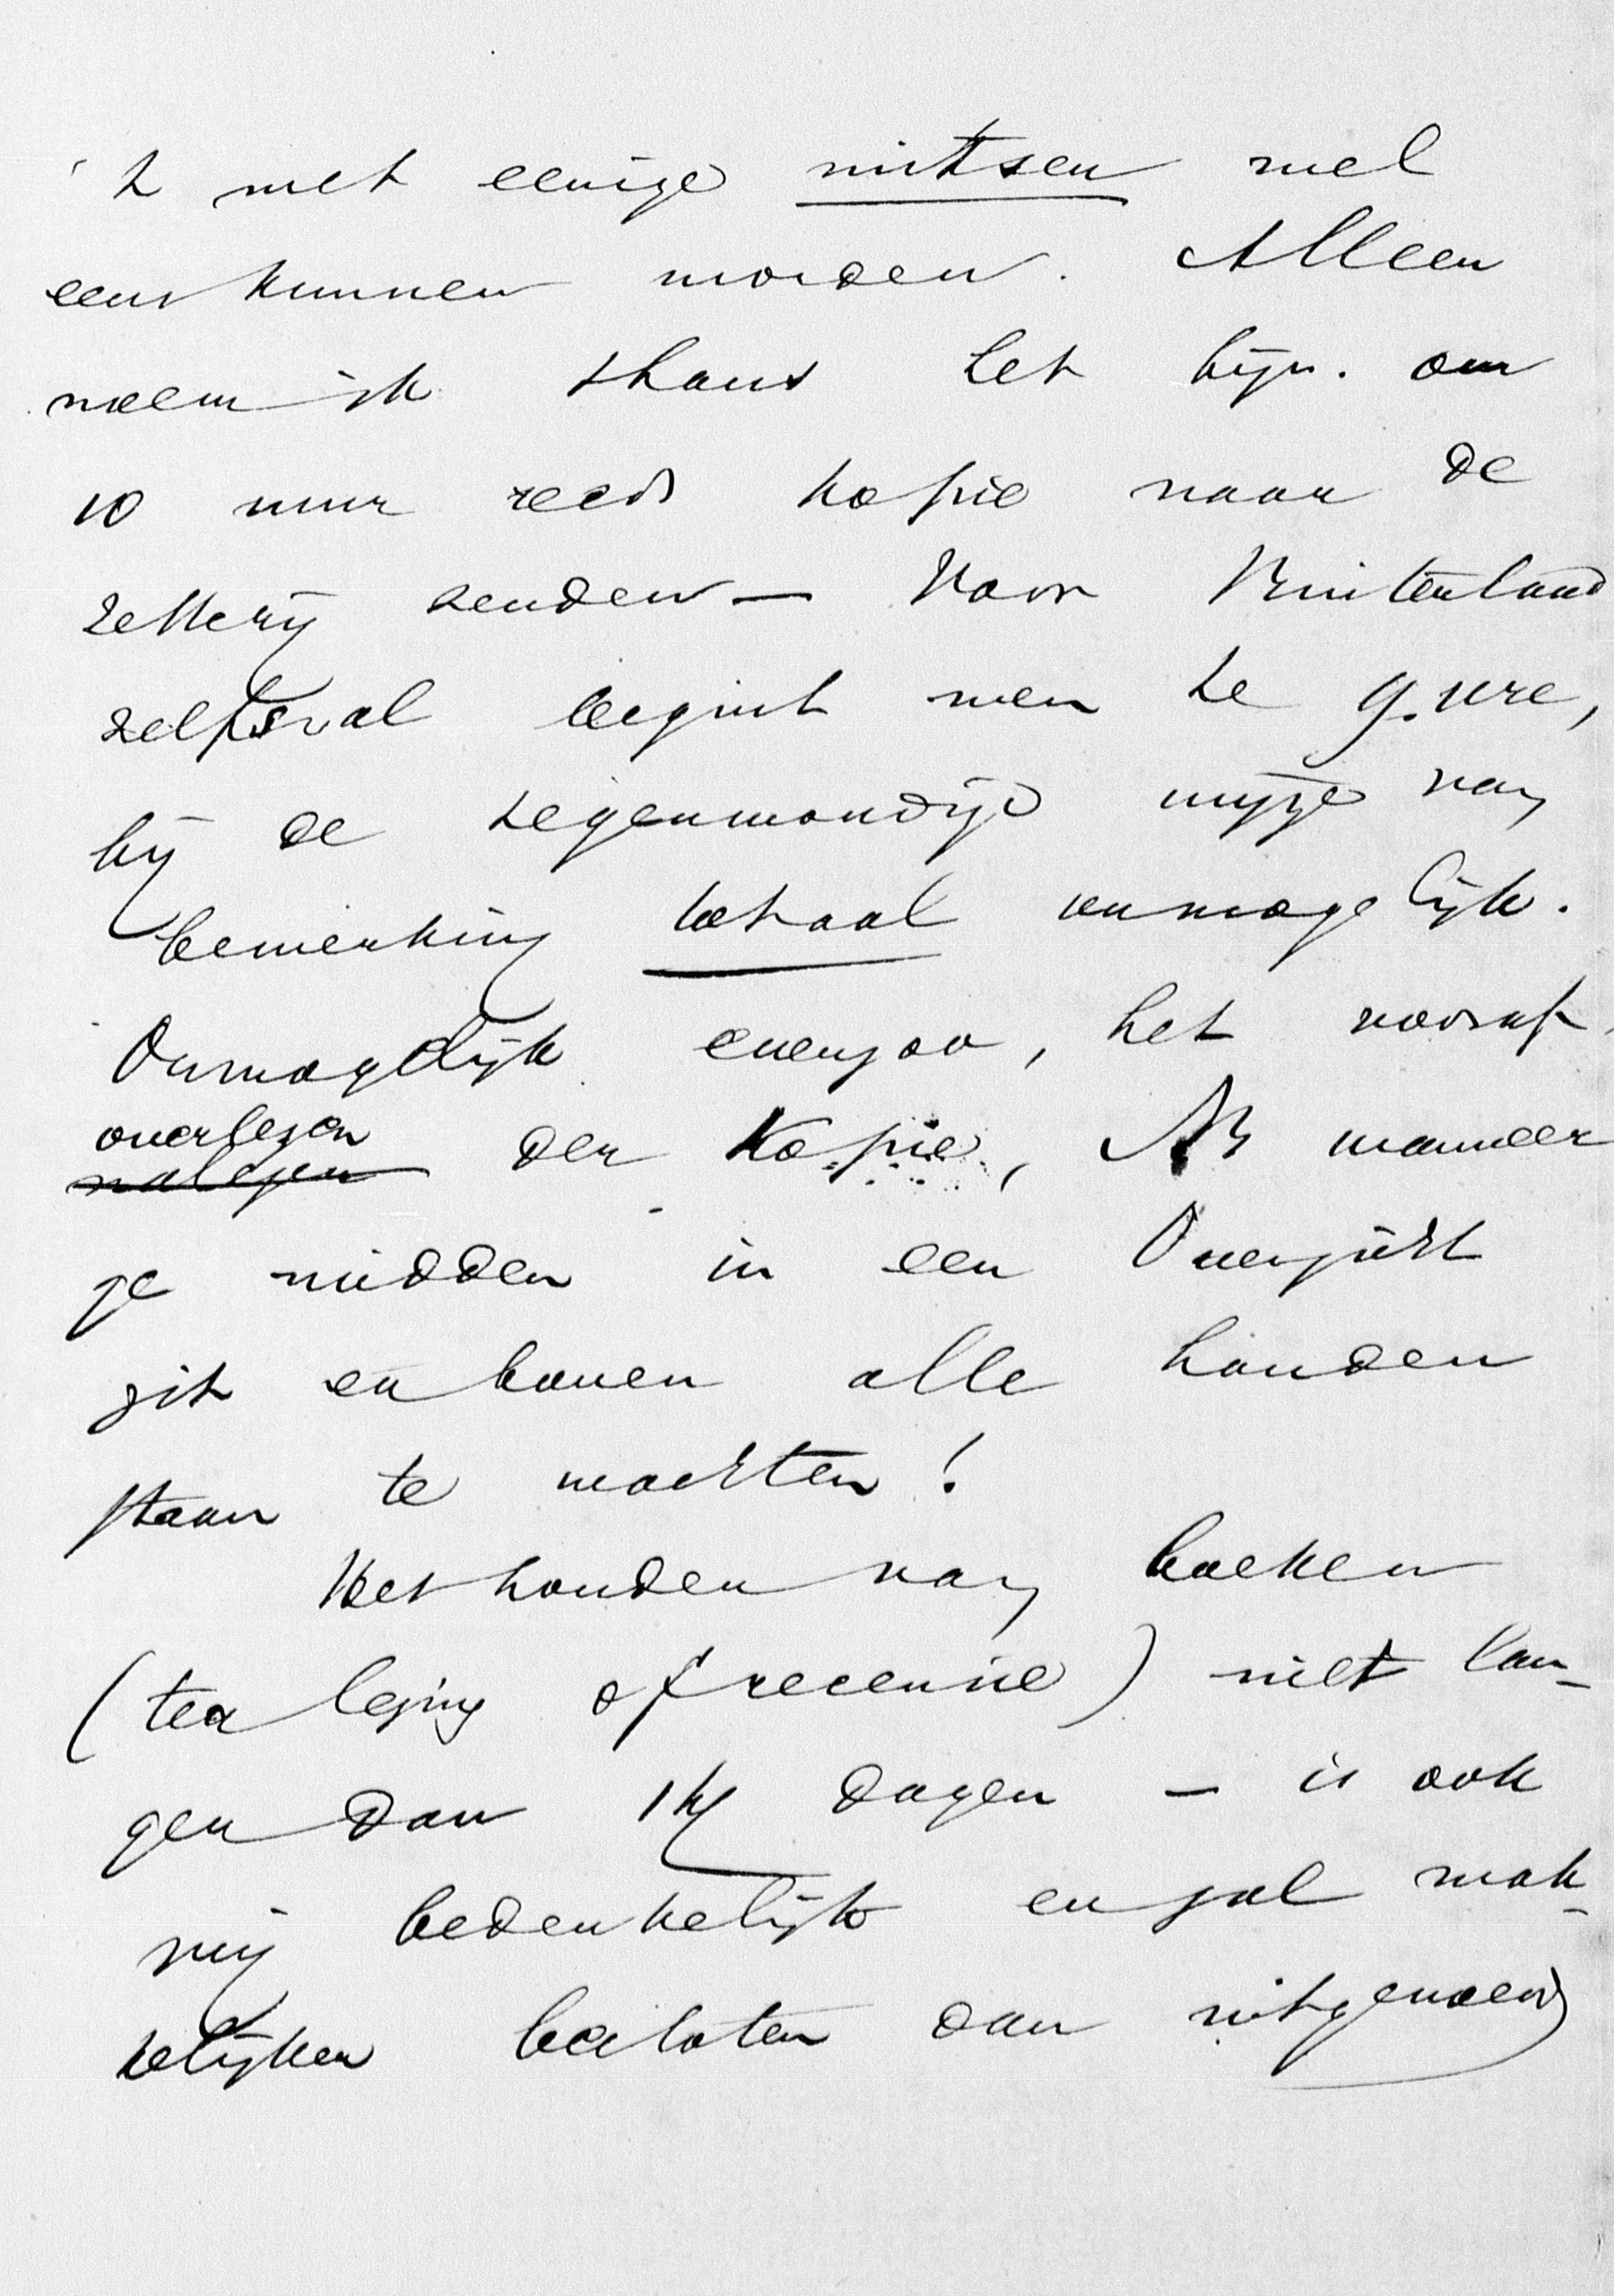 't met eenige mitsen wel
eens kunnen worden. Alleen
noem ik thans het bijv. om
10 uur reeds kopie naar de
zetterij zenden — Voor Buitenland
zelfs zal begint men te 9. ure,
bij de tegenwoordige wijze van
bewerking totaal onmogelijk.
Onmogelijk evenzoo, het vooraf
overlezen
nalezen der Kopie, Als wanneer
ge midden in een Overzicht
zit en boven alle handen
staan te wachten!
Het houden van boeken
(ter lezing of recensie) niet lan-
ger dan 14 dagen — is ook
mij bedenkelijk en zal mak-
kelijker besloten dan uitgevoerd